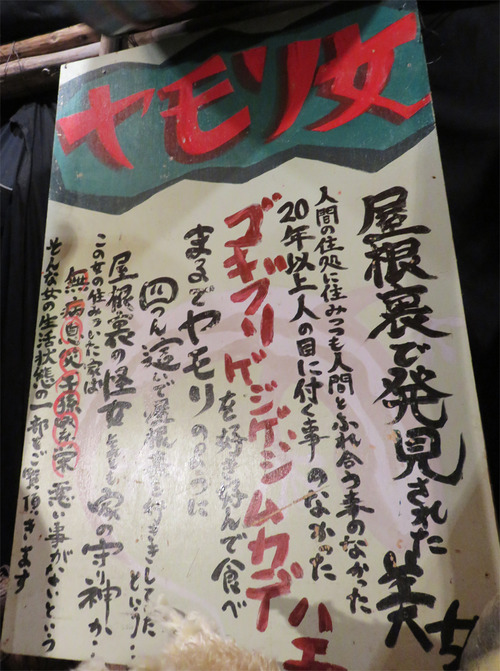 ヤモリ女
屋根裏で発見された美
人間の住処に住みつつも人間とふれ合う事のなかった
20年以上人の目に付く事のなかった
ゴキブリゲジゲジムカデハエ
を好き好んで食べ
まるでヤモリのように
四つん這いで屋根裏を行ききしてた
という・・
屋根裏の怪女とも家の守り神か・・
この女の住みついた家は
無病息災子孫繁栄悪い事がないという
そんな女の生活状態の一部をご覧頂きます